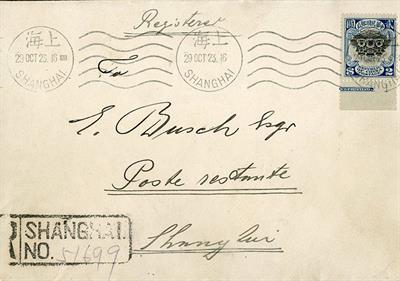 Registered
上海
29 OCT 23. 16
SHANGHAI
上海
29 OCT 23. 16
SHANGHAI
To
E. Busch Esqr
Poste restante
Shanghai
SHANGHAI.
NO. 51699
2